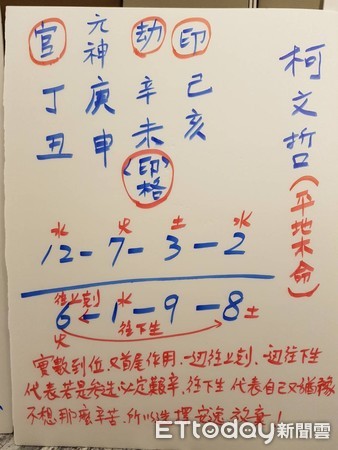 柯文哲(平地木命)
官 元神 劫 印
丁 庚 辛 己
丑 申 未 亥
(印格)
水 火 土 水
12-7-3-2
往上剋 水
6-1-9-8 土
火 往下生
實數到位,又首尾作用,一边往上剋,一边往下生
代表若是參選必定艱辛,往下生代表自己又猶豫
不想那麼辛苦,所以選擇安逸放棄!
ETtoday新聞雲